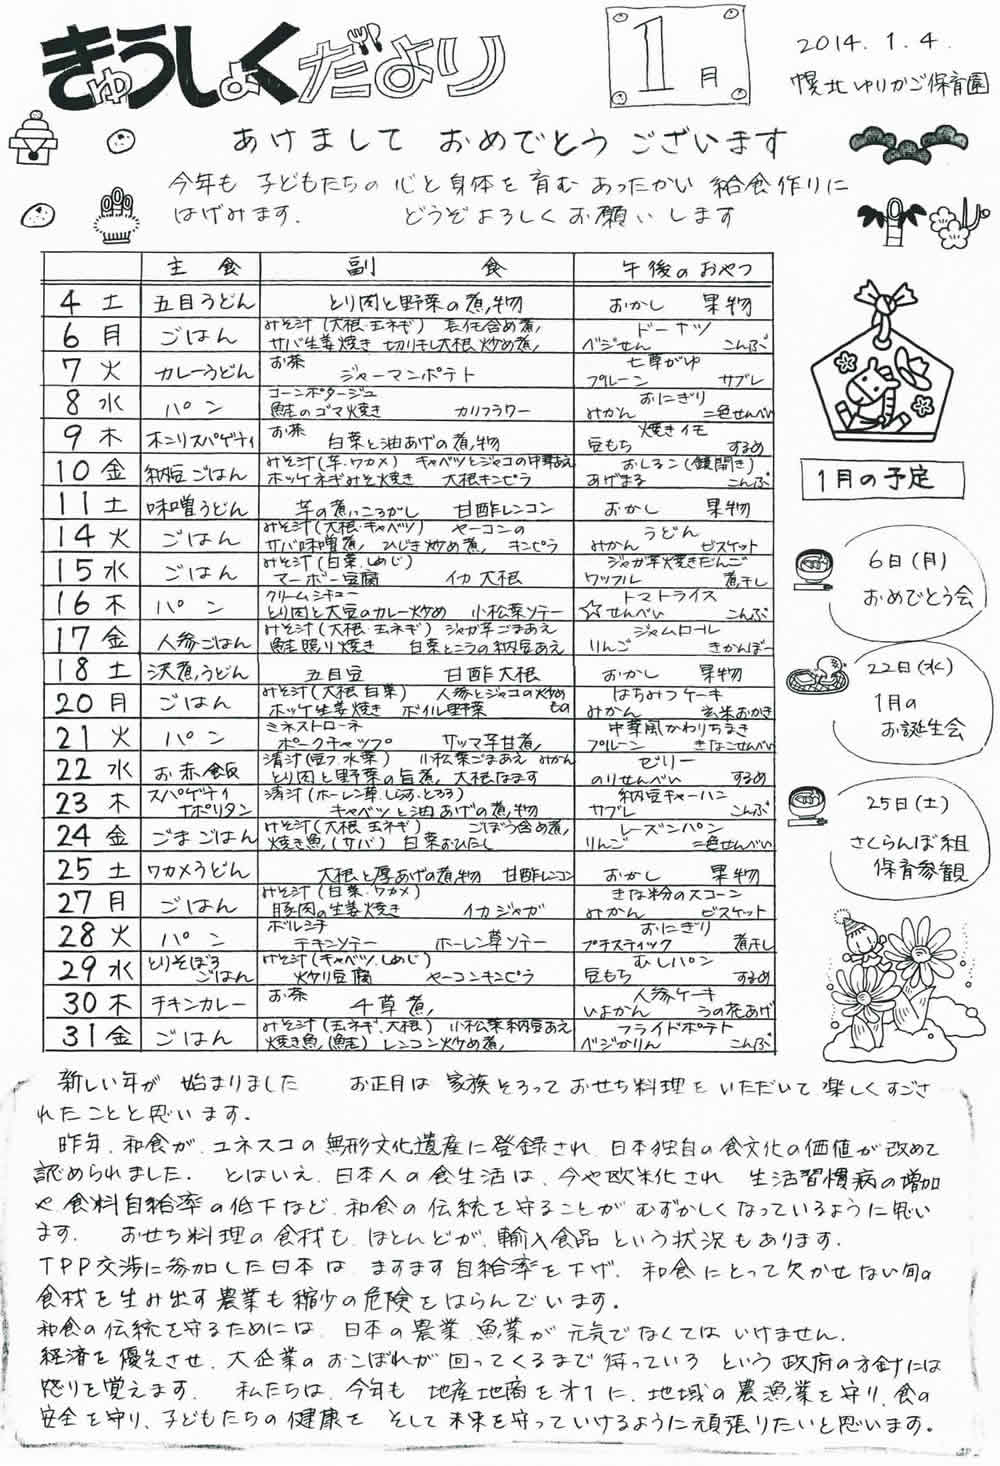 きゅうしょくだより
1月
2014.1.4.
幌北ゆりかご保育園
あけまして おめでとう ございます
今年も 子どもたちの 心と身体を 育む あったかい 給食作りに
はげみます. どうぞよろしくお願いします
主食 副食 午後のおやつ
4 土 五目うどん とり肉と野菜の煮物 おかし 果物
6 月 ごはん みそ汁(大根・玉ネギ) 長芋含め煮 ドーナツ
サバ生姜焼き 切り干し大根炒め煮 ベジせん こんぶ
7 火 カレーうどん お茶 七草がゆ
ジャーマンポテト プルーン サブレ
8 水 パン コーンポタージュ おにぎり
鮭のゴマ焼き カリフラワー みかん 二色せんべい
9 木 ホニリスパゲティ お茶 焼きイモ
白菜と油あげの煮物 豆もち するめ
10 金 納豆ごはん みそ汁(芋・ワカメ) キャベツとジャコの中華あえ おしるこ(鏡開き)
ホッケネギみそ焼き 大根キンピラ あげまる こんぶ
11 土 味噌うどん 芋の煮っころがし 甘酢レンコン おかし 果物
14 火 ごはん みそ汁(大根・キャベツ) ヤーコンの うどん
サバ味噌煮 ひじき炒め煮 キンピラ みかん ビスケット
15 水 ごはん みそ汁(白菜.しめじ) ジャガ芋焼きだんご
マーボー豆腐 イカ大根 ワッフル 煮干し
16 木 パン クリームシチュー トマトライス
とり肉と大豆のカレー炒め 小松菜ソテー ☆せんべい こんぶ
17 金 人参ごはん みそ汁(大根・玉ネギ) ジャガ芋ごまあえ ジャムロール
鮭照り焼き 白菜とニラの納豆あえ りんご きかんぼー
18 土 沢煮うどん 五目豆 甘酢大根 おかし 果物
20 月 ごはん みそ汁(大根 白菜) 人参とジャコの炒め はちみつケーキ
ホッケ生姜焼き ボイル野菜 もの みかん 玄米おかき
21 火 パン ミネストローネ 中華風かわりちまき
ポークチャップ サツマ芋甘煮 プルーン きなこせんべい
22 水 お赤飯 清汁(豆フ.水菜) 小松菜ごまあえ みかん ゼリー
とり肉と野菜の旨煮 大根なます のりせんべい するめ
23 木 スパゲティ 清汁(ホーレン草.しらす.とろろ) 納豆チャーハン
ナポリタン キャベツと油あげの煮物 サブレ こんぶ
24 金 ごまごはん みそ汁(大根 玉ネギ) ごぼう含め煮 レーズンパン
焼き魚(サバ) 白菜おひたし りんご 二色せんべい
25 土 ワカメうどん 大根と厚あげの煮物 甘酢レンコン おかし 果物
27 月 ごはん みそ汁(白菜・ワカメ) きな粉のスコーン
豚肉の生姜焼き イカジャガ みかん ビスケット
28 火 パン ボルシチ おにぎり
チキンソテー ホーレン草ソテー プチスティック 煮干し
29 水 とりそぼろ みそ汁(キャベツ.しめじ) むしパン
ごはん 炒り豆腐 ヤーコンキンピラ 豆もち するめ
30 木 チキンカレー お茶 人参ケーキ
千草煮 いよかん うの花あげ
31 金 ごはん みそ汁(玉ネギ、大根) 小松菜納豆あえ フライドポテト
焼き魚(鮭) レンコン炒め煮 ベジかりん こんぶ
1月の予定
6日(月)
おめでとう会
22日(水)
1月の
お誕生会
25日(土)
さくらんぼ組
保育参観
新しい年が 始まりました お正月は 家族そろっておせち料理を いただいて 楽しくすごさ
れたことと思います.
昨年、和食が、ユネスコの無形文化遺産に登録され、日本独自の食文化の価値が改めて
認められました. とはいえ、日本人の食生活は、今や欧米化され 生活習慣病の増加
や、食料自給率の低下など、和食の伝統を守ることがむずかしくなっているように思い
ます. おせち料理の食材も、ほとんどが、輸入食品という状況もあります.
TPP交渉に参加した日本は、ますます自給率を下げ、和食にとって欠かせない旬の
食材を生み出す農業も縮少の危険をはらんでいます。
和食の伝統を守るためには、日本の農業、魚業が 元気でなくてはいけません.
経済を優先させ、大企業のおこぼれが 回ってくるまで待っている という政府の方針には
怒りを覚えます. 私たちは、今年も 地産地商を才1に、地域の農漁業を守り、食の
安全を守り、子どもたちの健康を そして未来を守っていけるように頑張りたいと思います。